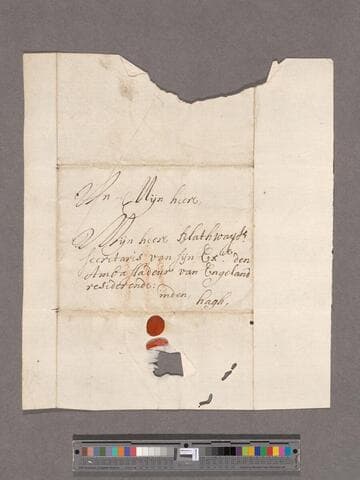 Mijn heere,
Mijn heere Blathwayt
Secretaris van sijn Ex.^t den
Ambassadeur van Engeland
residerende:
inden hagh.